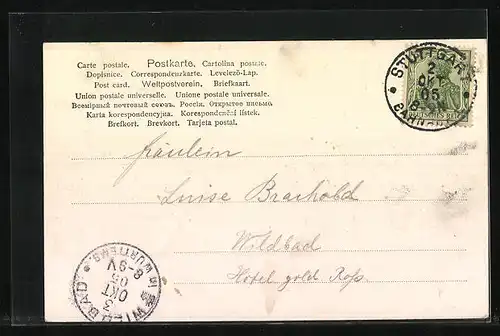 Carte postale. Postkarte. Cartolina postale.
Dopisnice. Correspondenzkarte. Levelezö-Lap.
Post card. Weltpostverein. Briefkaart.
Union postale universelle. Unione postale universale.
Всемірный почтовый союзъ. Россія. Открытое письмо.
Karta korespondencyjna. Korespondenční lístek.
Brefkort. Brevkort. Tarjeta postal.
STUTTGART
2
OKT
05
BAHNHOF
Fräulein
Luise Brachold
Wildbad
Hotel gold Roß.
WILDBAD
WÜRTTEMB.
3
OKT
05
8-9V